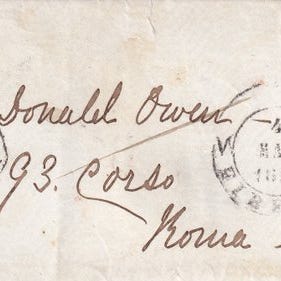 Donald Owen
93. Corso
Roma